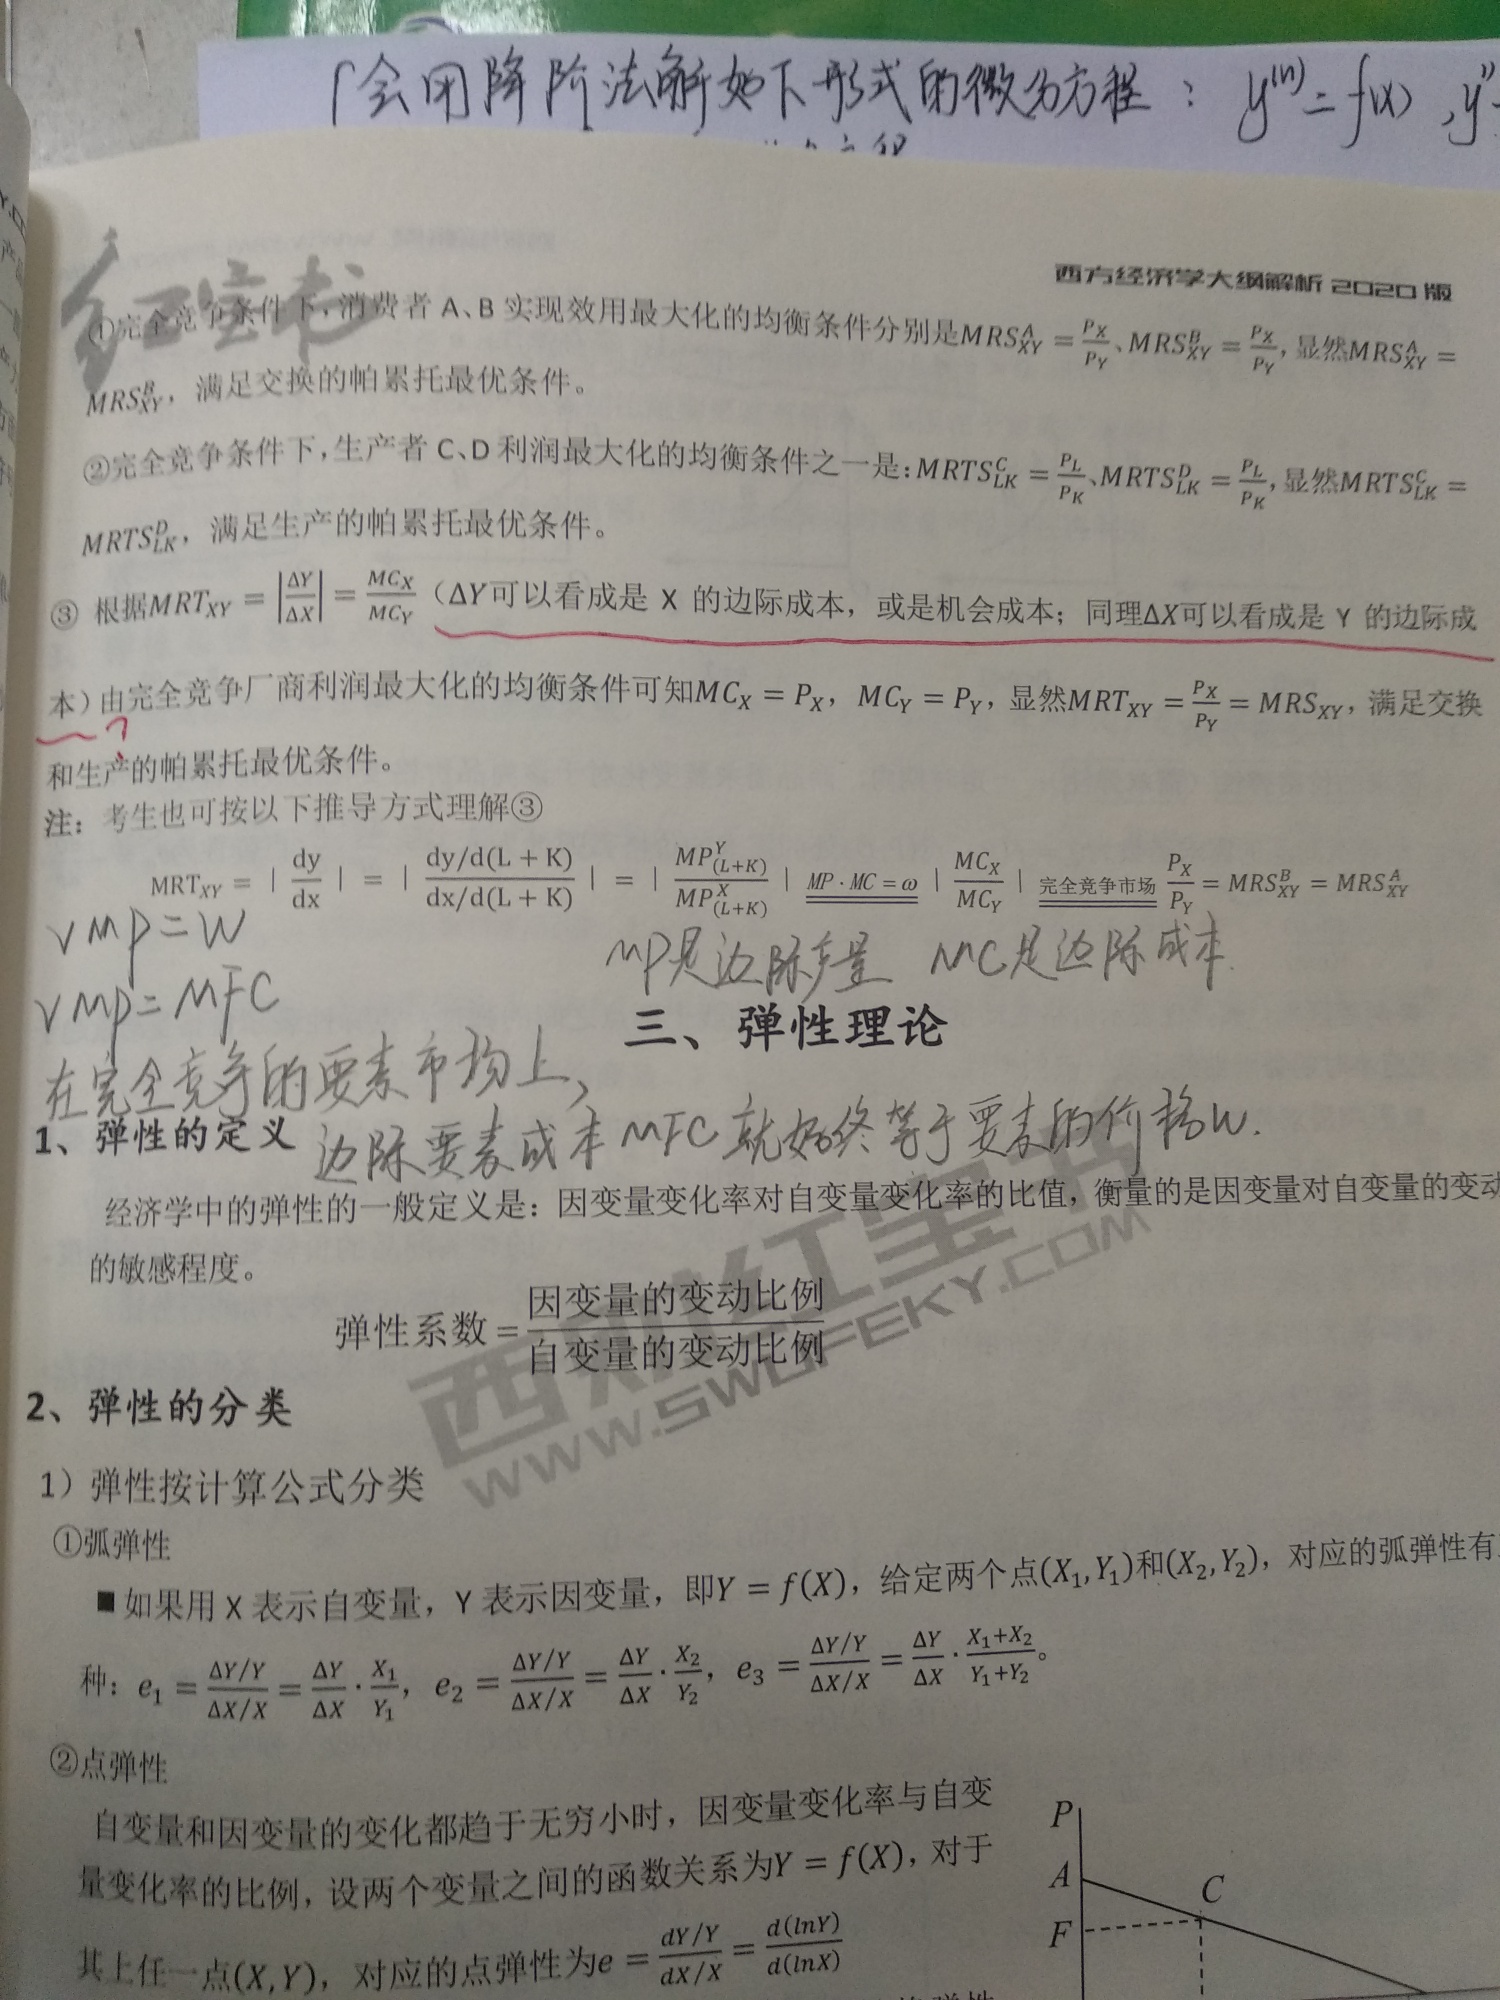 会用降阶法解如下形式的微分方程： y⁽ⁿ⁾=f(x), y''
西方经济学大纲解析 2020 版
红宝书
①完全竞争条件下，消费者 A、B 实现效用最大化的均衡条件分别是MRS^A_XY = P_X/P_Y、MRS^B_XY = P_X/P_Y，显然MRS^A_XY =
MRS^B_XY，满足交换的帕累托最优条件。
②完全竞争条件下，生产者 C、D 利润最大化的均衡条件之一是：MRTS^C_LK = P_L/P_K、MRTS^D_LK = P_L/P_K，显然MRTS^C_LK =
MRTS^D_LK，满足生产的帕累托最优条件。
③ 根据MRT_XY = |ΔY/ΔX| = MC_X/MC_Y（ΔY可以看成是 X 的边际成本，或是机会成本；同理ΔX可以看成是 Y 的边际成
本）由完全竞争厂商利润最大化的均衡条件可知MC_X = P_X，MC_Y = P_Y，显然MRT_XY = P_X/P_Y = MRS_XY，满足交换
?
和生产的帕累托最优条件。
注：考生也可按以下推导方式理解③
MRT_XY = |dy/dx| = |dy/d(L + K) / dx/d(L + K)| = |MP^Y_(L+K) / MP^X_(L+K)| MP·MC=ω |MC_X/MC_Y| 完全竞争市场 P_X/P_Y = MRS^B_XY = MRS^A_XY
VMP=W
MP是边际产量 MC是边际成本.
VMP=MFC
三、弹性理论
在完全竞争的要素市场上，
边际要素成本MFC就始终等于要素的价格W.
1、弹性的定义
经济学中的弹性的一般定义是：因变量变化率对自变量变化率的比值，衡量的是因变量对自变量的变动
的敏感程度。
弹性系数=因变量的变动比例/自变量的变动比例
西财红宝书
WWW.SWUFEKY.COM
2、弹性的分类
1）弹性按计算公式分类
①弧弹性
■如果用 X 表示自变量，Y 表示因变量，即Y = f(X)，给定两个点(X₁,Y₁)和(X₂,Y₂)，对应的弧弹性有
种：e₁ = (ΔY/Y)/(ΔX/X) = ΔY/ΔX · X₁/Y₁，e₂ = (ΔY/Y)/(ΔX/X) = ΔY/ΔX · X₂/Y₂，e₃ = (ΔY/Y)/(ΔX/X) = ΔY/ΔX · (X₁+X₂)/(Y₁+Y₂)。
②点弹性
自变量和因变量的变化都趋于无穷小时，因变量变化率与自变
量变化率的比例，设两个变量之间的函数关系为Y = f(X)，对于
其上任一点(X,Y)，对应的点弹性为e = (dY/Y)/(dX/X) = d(lnY)/d(lnX)
P
A
C
F